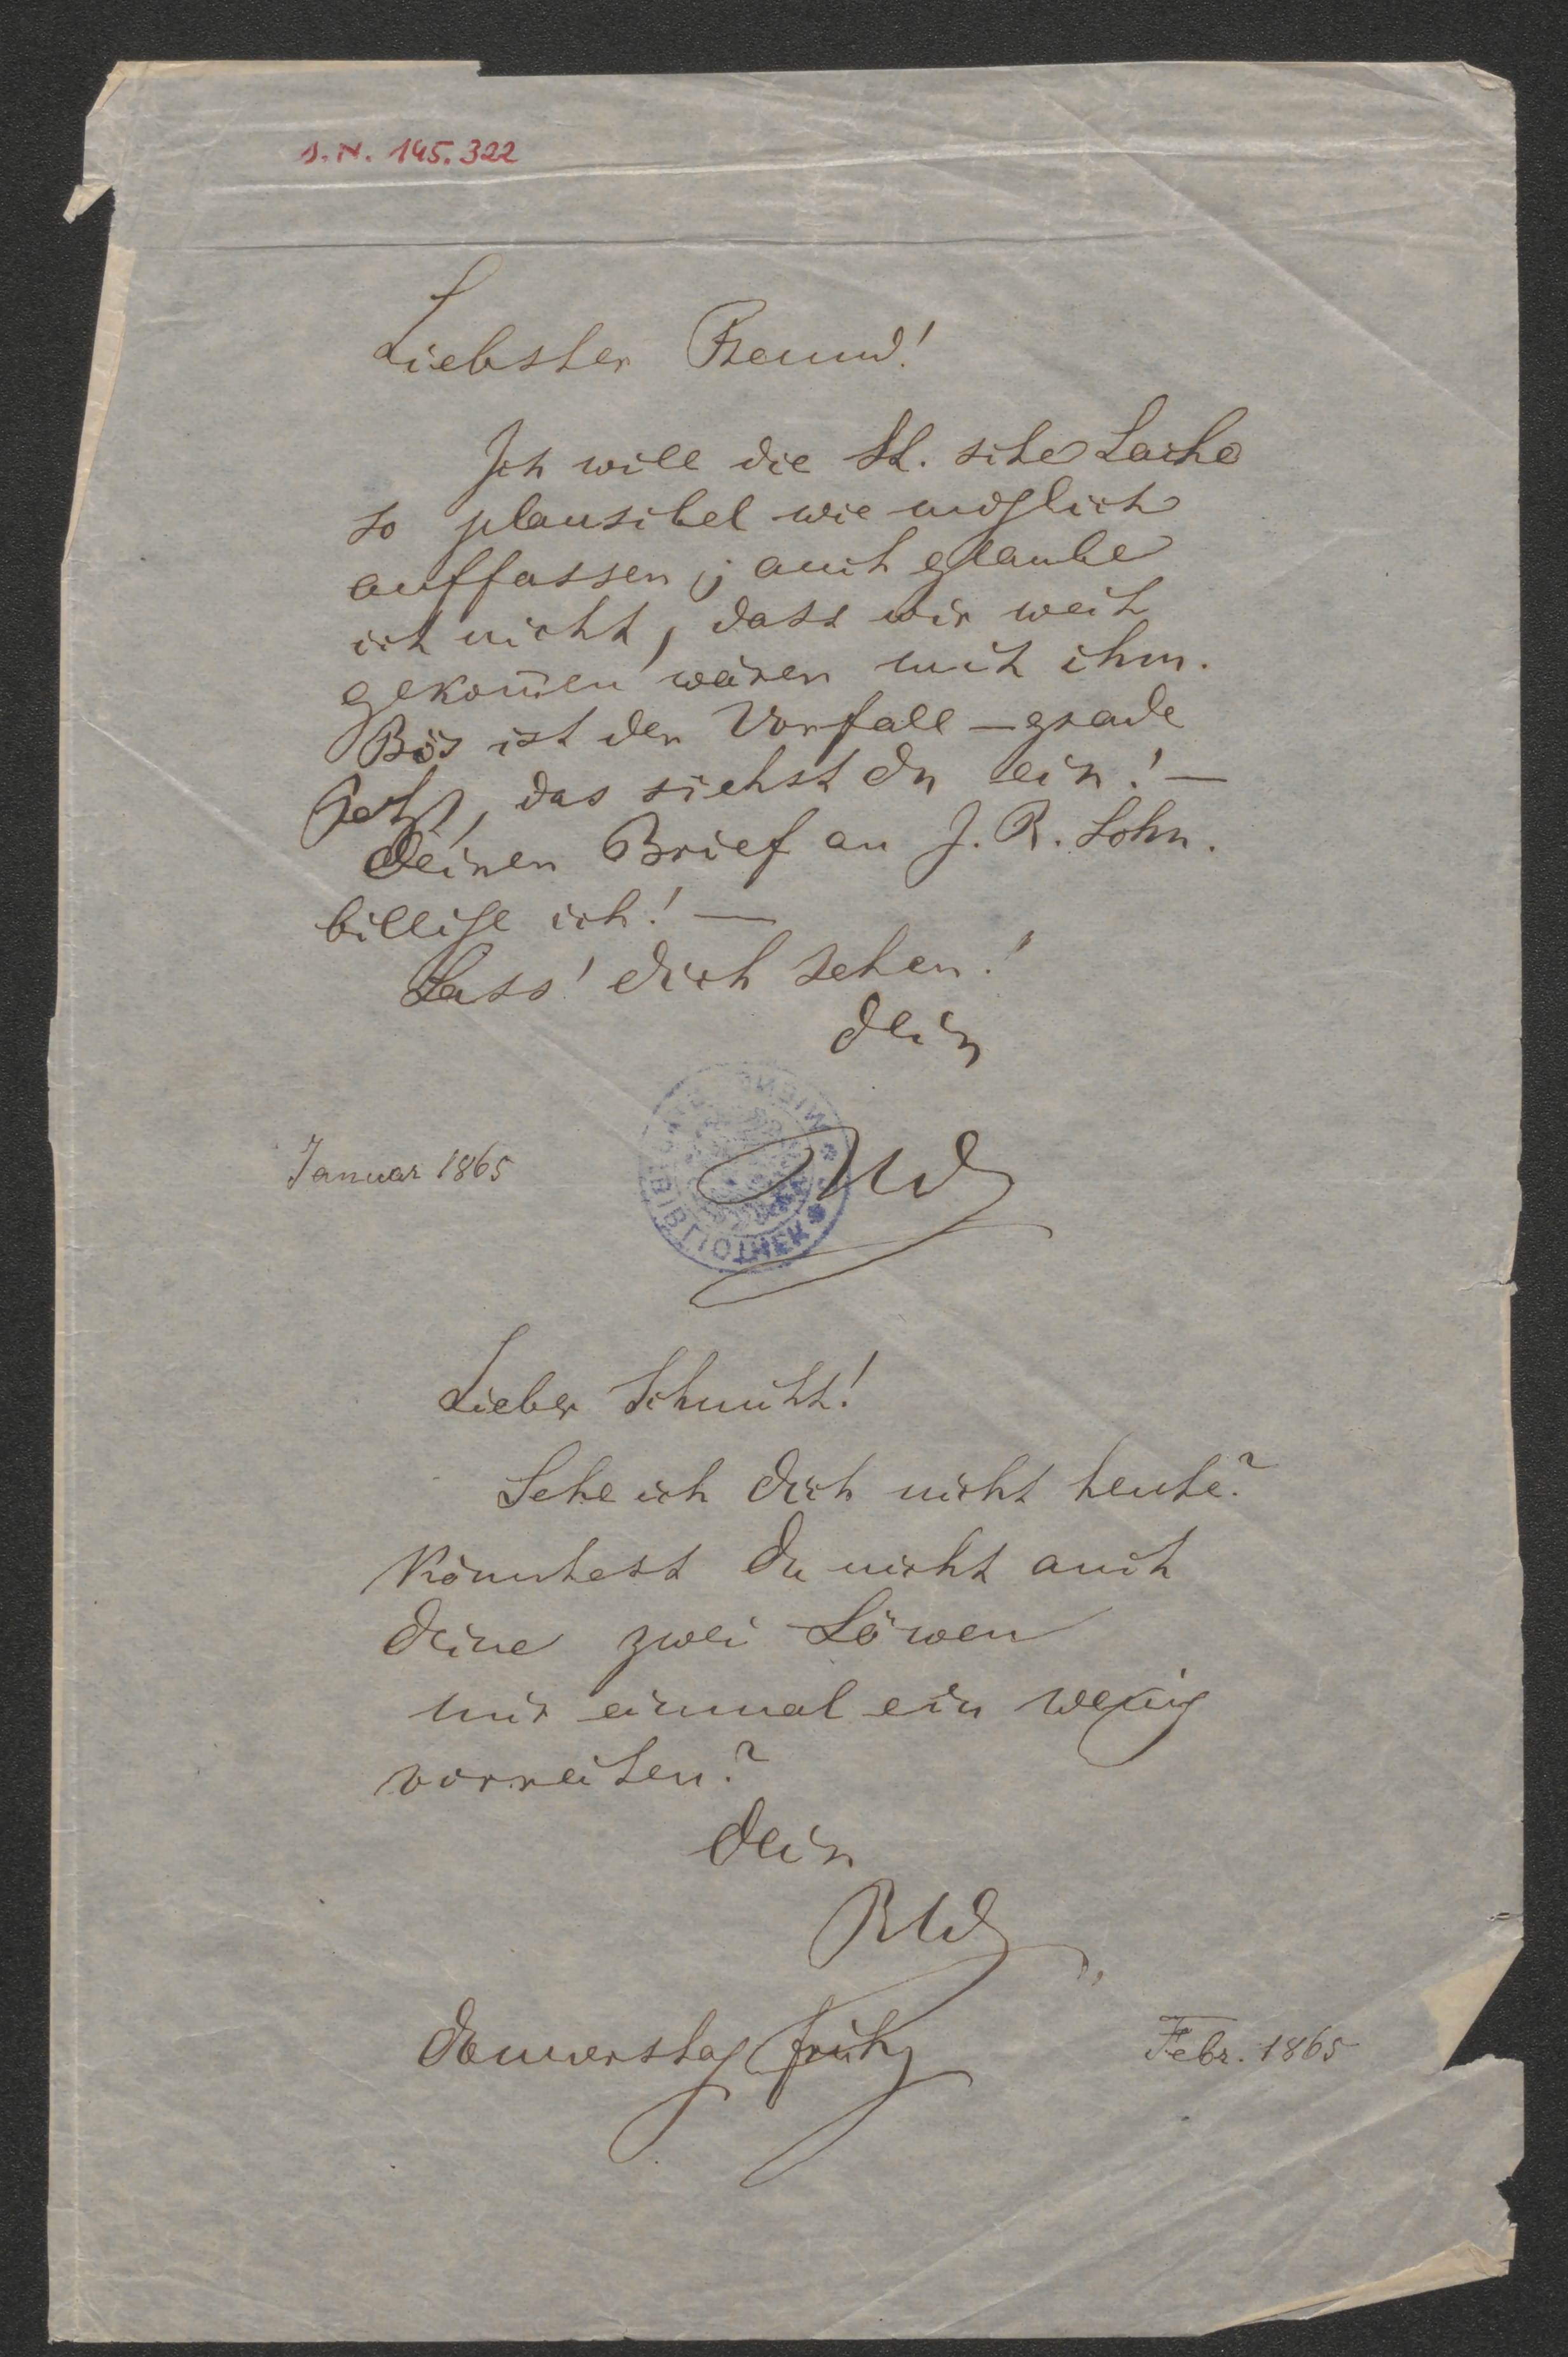 S.N. 145.322
Liebster Freund!
Ich will die St. sche Sache
so plausibel wie möglich
auffassen; auch glaube
ich nicht, dass wir weit
gekom̄en wären mit ihm.
Bös ist der Vorfall – grade
jetzt, das siehst du ein! –
Deinen Brief an J. R. Sohn.
billige ich! –
Lass' dich sehen!
Dein
Januar 1865
BIBLIOTHEK
WIEN
RW
Lieber Schmitt!
Sehe ich dich nicht heute?
Könntest du nicht auch
deine zwei Löwen
mir einmal ein wenig
vorreiten?
Dein
RW
Donnerstag früh
Febr. 1865